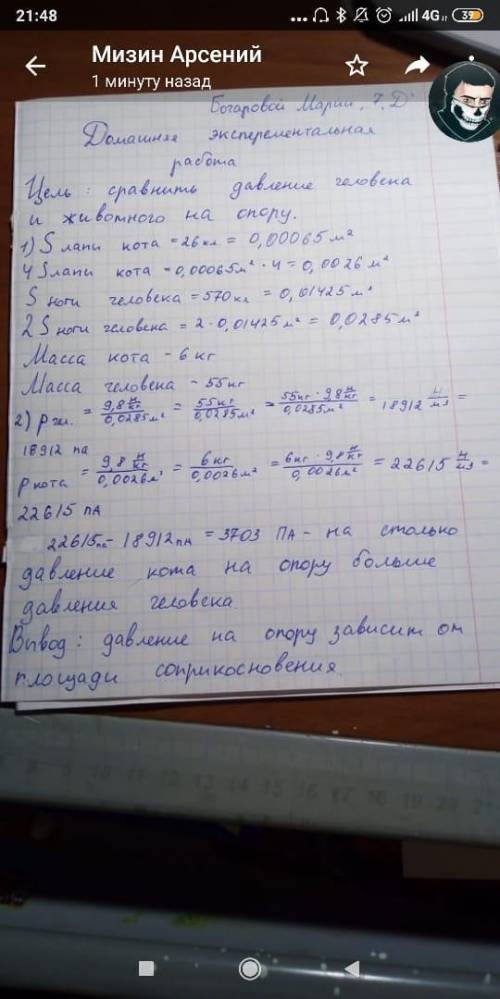 21:48
4G
39
Мизин Арсений
1 минуту назад
Богаровой Марии, 7 "Д"
Домашняя эксперементальная
работа
Цель: сравнить давление человека
и животного на опору.
1) S лапы кота = 26 кл = 0,00065 м²
4 S лапы кота = 0,00065 м² · 4 = 0,0026 м²
S ноги человека = 570 кл = 0,01425 м²
2 S ноги человека = 2 · 0,01425 м² = 0,0285 м²
Масса кота - 6 кг
Масса человека - 55 кг
2) p = 9,8 н/кг / 0,0285 м² = 55 кг / 0,0285 м² = 55 кг · 9,8 н/кг / 0,0285 м² = 18912 н/м³ =
18912 па
p кота = 9,8 н/кг / 0,0026 м² = 6 кг / 0,0026 м² = 6 кг · 9,8 н/кг / 0,0026 м² = 22615 н/м³ =
22615 па
22615 па - 18912 па = 3703 Па - на столько
давление кота на опору больше
давления человека
Вывод: давление на опору зависит от
площади соприкосновения.